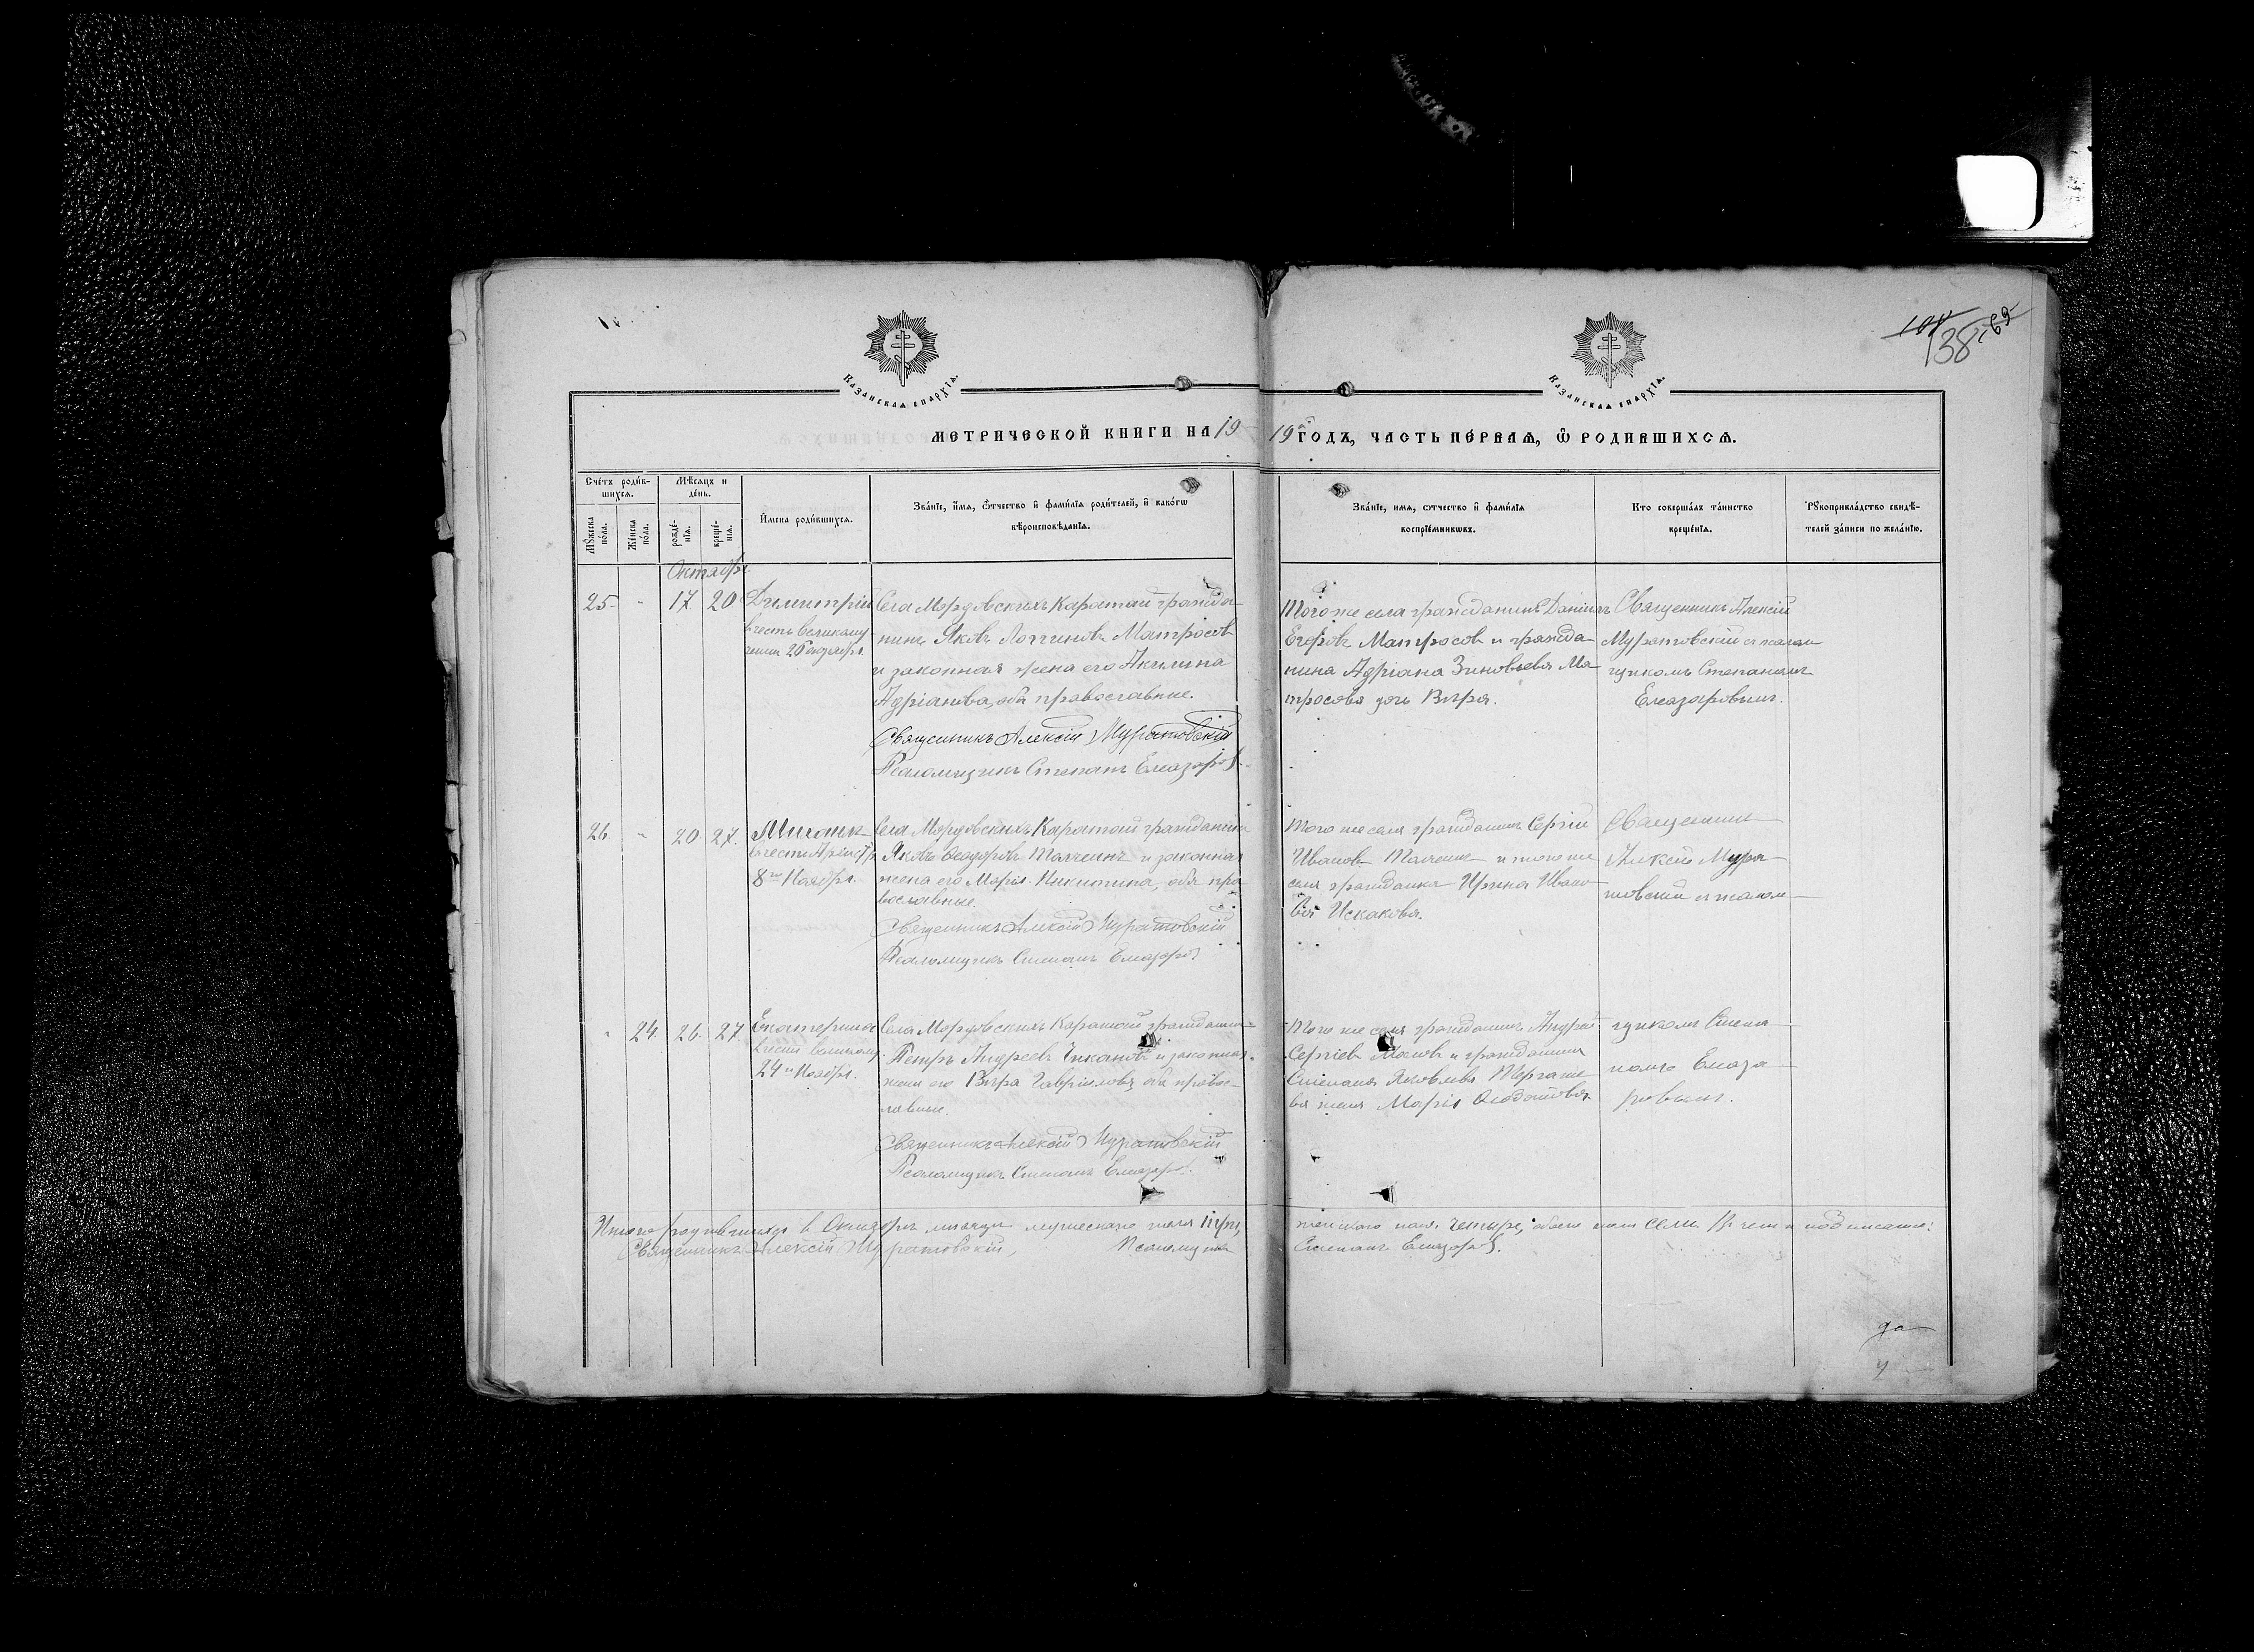 138
Казанская епархїя.
Казанская епархїя.
МЕТРИЧЕСКОЙ КНИГИ НА 1919 ГОДЪ, ЧАСТЬ ПЕРВАЯ, Ѡ РОДИВШИХСЯ.
Счетъ родив-
шихся.
Мужеска пола.
Женска пола.
Мѣсяцъ и
день.
рожде-
нїя.
креще-
нїя.
Имена родившихся.
Званїе, имя, ѿтчество и фамилїя родителей, и какогѡ
вѣроисповѣданїя.
Званїе, имя, ѿтчество и фамилїя
воспрїемникѡвъ.
Кто совершалъ таинство
крещенїя.
Рукоприкладство свидѣ-
телей записи по желанїю.
Октябрь
25 " 17 20
Димитрій
въ честь великому-
Села Мордовскихъ Каратай гражда-
нинъ Яковъ Логиновъ Матросовъ
и законная жена его Акилина
Адріанова, оба православные.
Священникъ Алексій Муратовскій
Псаломщикъ Степанъ Елеазаровъ
Того же села гражданинъ Даніилъ
Егоровъ Матросовъ и гражда-
нина Адріана Зиновьева Ма-
тросова дочь Вѣра.
Священникъ Алексій
Муратовскій съ псалом-
щикомъ Степаномъ
Елеазаровымъ.
26 " 20 27.
Михаилъ
8го Ноября.
Села Мордовскихъ Каратай гражданинъ
Яковъ Ѳеодоровъ и законная
жена его Марія Никитина, оба пра-
вославные.
Священникъ Алексій Муратовскій
Псаломщикъ Степанъ Елеазаровъ
Того же села гражданинъ Сергій
Ивановъ и того же
села гражданка Ирина Ивано-
ва Искакова.
Священникъ
Алексій Мура-
товскій съ псалом-
" 24. 26. 27
Екатерина
въ честь великому.
24го Ноября.
Села Мордовскихъ Каратай гражданинъ
Петръ Андреевъ Чекановъ и законная
жена его Вѣра Гавріилова, оба правос-
лавные.
Священникъ Алексій Муратовскій
Псаломщикъ Степанъ Елеазаровъ.
Того же села гражданинъ Андрей
Сергіевъ и гражданина
Степана Яковлева
жена Марія
щикомъ Степа-
номъ Елеаза-
ровымъ.
Итого родившихся въ Октябрѣ мѣсяцѣ мужескаго пола три, женскаго пола четыре, обоего пола семь. Въ чемъ и подписались:
Священникъ Алексій Муратовскій, Псаломщикъ Степанъ Елеазаровъ.